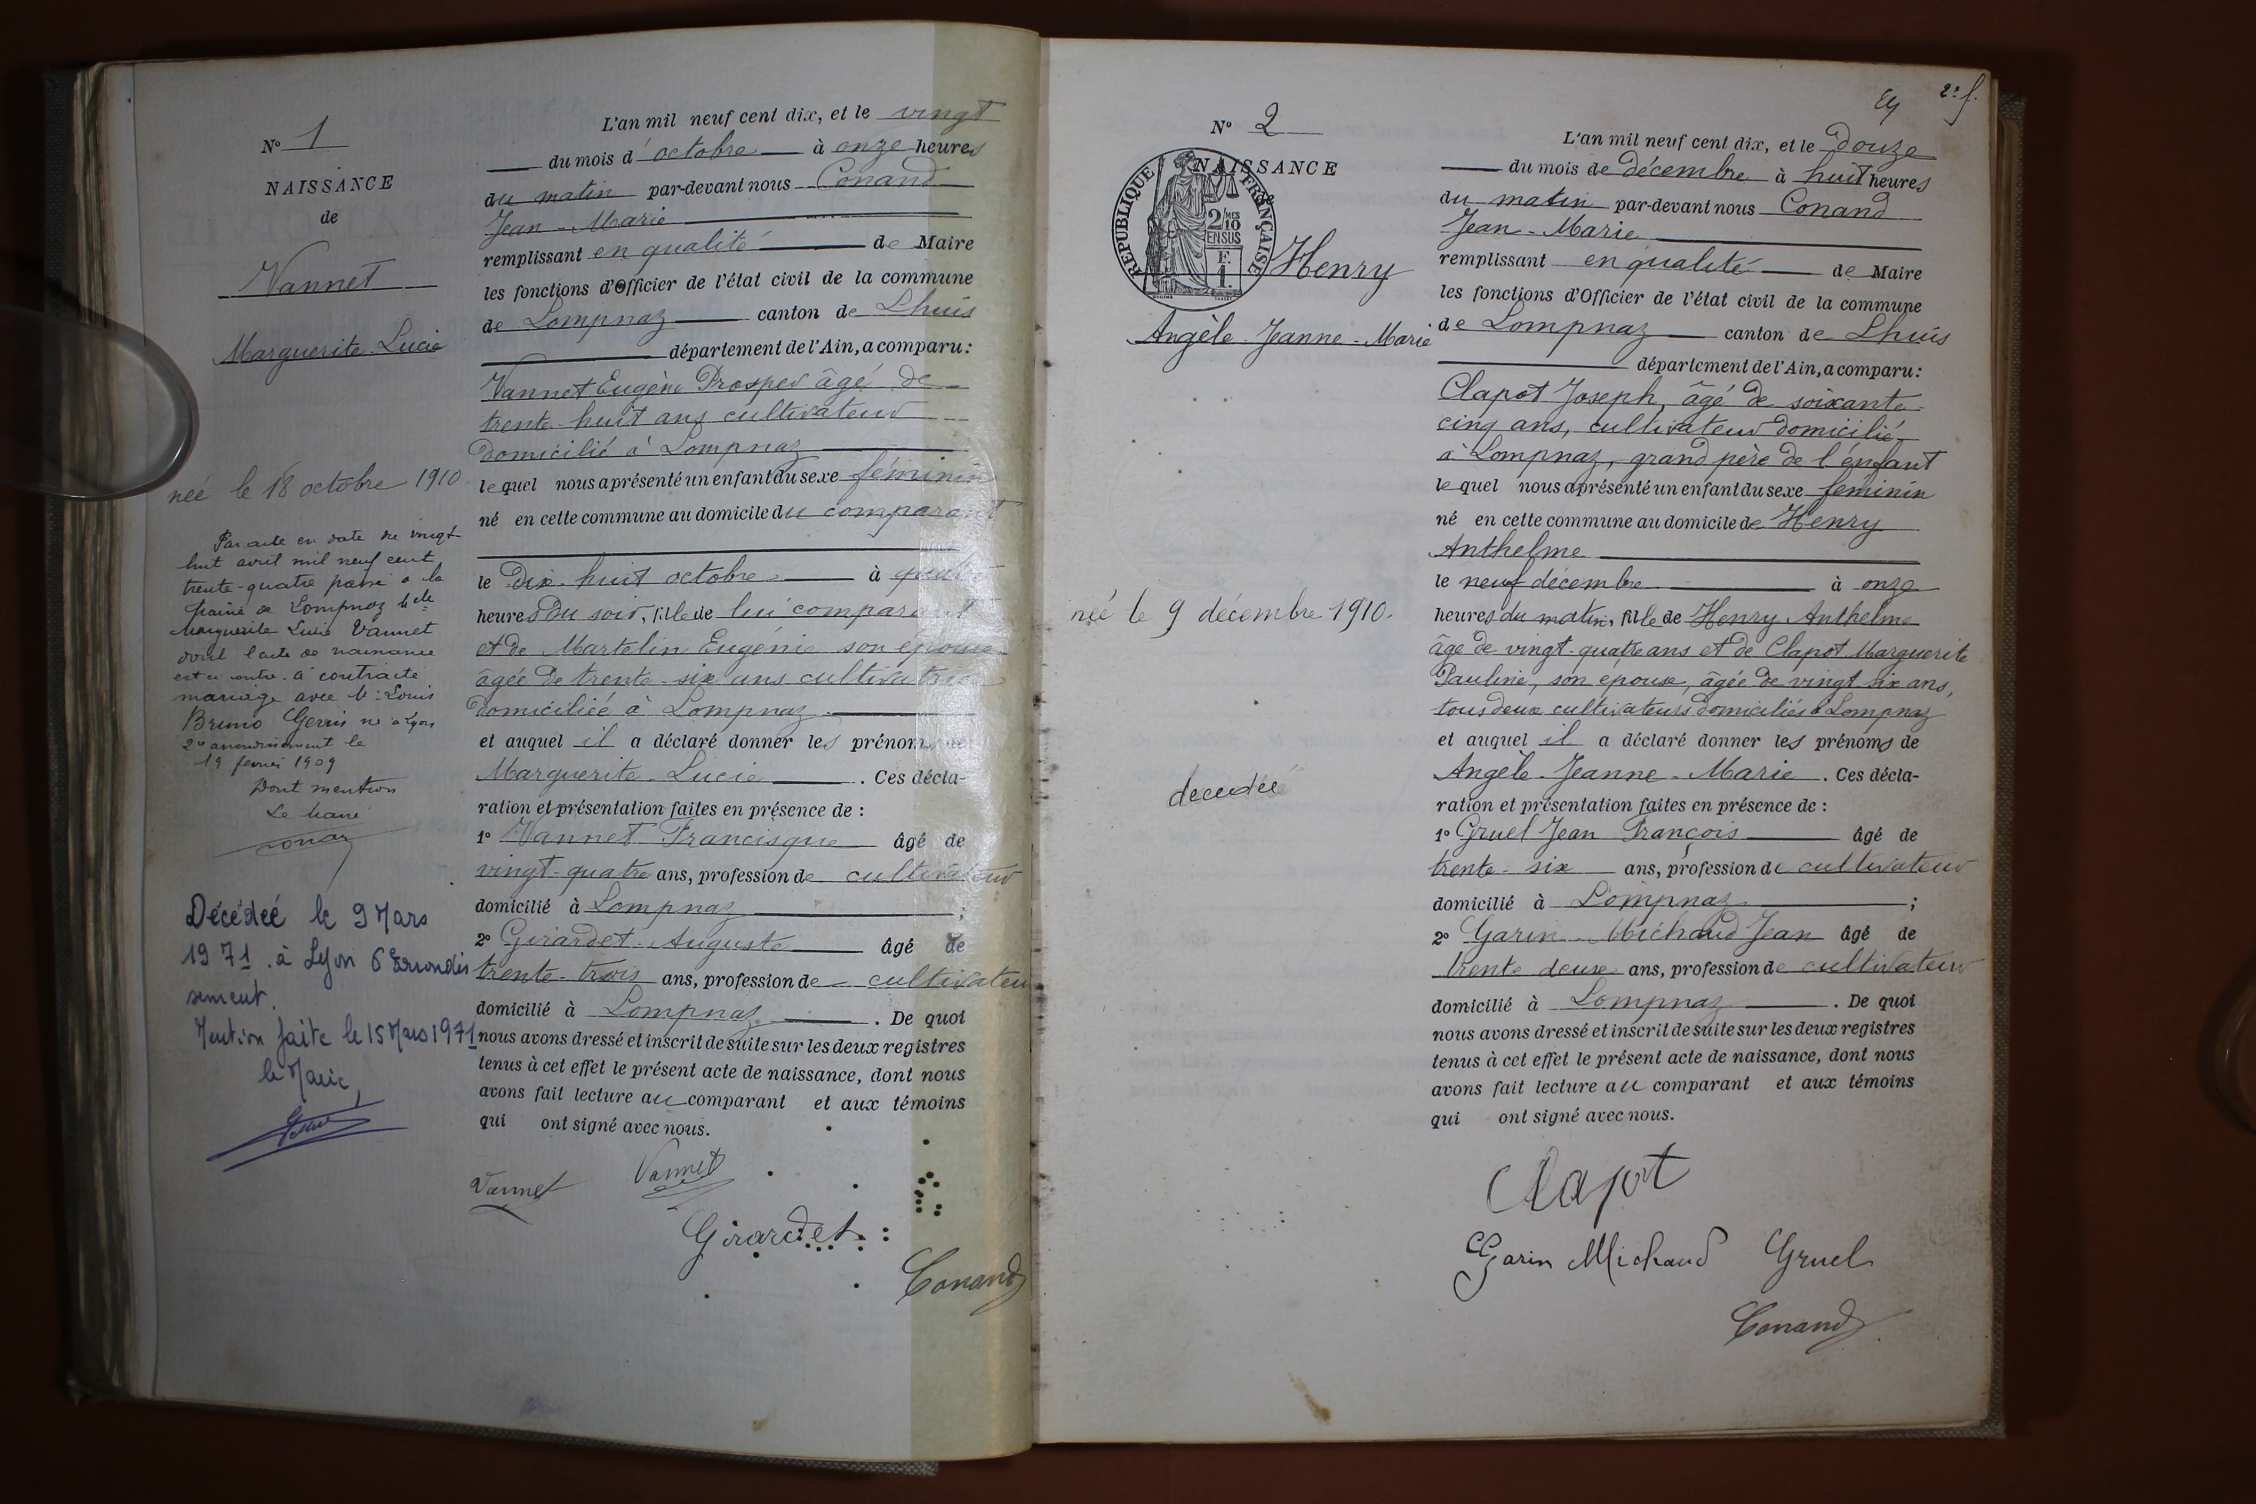 N° 1
NAISSANCE
de
Vannet
Marguerite Lucie
née le 18 octobre 1910
Par acte en date du vingt
huit avril mil neuf cent
trente-quatre passé à la
Mairie de Lompnaz Melle
Marguerite Lucie Vannet
dont l'acte de naissance
est ci contre a contracté
mariage avec M. Louis
Bruno né à Lyon
2e arrondissement le
19 février 1909
Dont mention
Le Maire
Décédée le 9 Mars
1971 à Lyon 6 arrondis
sement.
Mention faite le 15 Mars 1971
le Maire,
L'an mil neuf cent dix, et le vingt
du mois d'octobre à onze heures
du matin par-devant nous Conand
Jean-Marie
remplissant en qualité de Maire
les fonctions d'Officier de l'état civil de la commune
de Lompnaz canton de Lhuis
département de l'Ain, a comparu:
Vannet Eugène Prosper âgé de
trente-huit ans cultivateur
domicilié à Lompnaz
lequel nous a présenté un enfant du sexe féminin
né en cette commune au domicile du comparant
le dix-huit octobre à
heures du soir, fille de lui comparant
et de Martelin Eugénie son épouse
âgée de trente-six ans cultivatrice
domiciliée à Lompnaz
et auquel il a déclaré donner les prénoms de
Marguerite-Lucie. Ces décla-
ration et présentation faites en présence de :
1° Vannet Francisque âgé de
vingt-quatre ans, profession de cultivateur
domicilié à Lompnaz ;
2° Girardet Auguste âgé de
trente-trois ans, profession de cultivateur
domicilié à Lompnaz. De quoi
nous avons dressé et inscrit de suite sur les deux registres
tenus à cet effet le présent acte de naissance, dont nous
avons fait lecture au comparant et aux témoins
qui ont signé avec nous.
Vannet Vannet
Girardet
Conand
2e f.
N° 2
NAISSANCE
RÉPUBLIQUE FRANÇAISE
2/10
EN SUS
Henry
Angèle-Jeanne-Marie
née le 9 décembre 1910.
decedée
L'an mil neuf cent dix, et le douze
du mois de décembre à huit heures
du matin par-devant nous Conand
Jean-Marie
remplissant en qualité de Maire
les fonctions d'Officier de l'état civil de la commune
de Lompnaz canton de Lhuis
département de l'Ain, a comparu:
Clapot Joseph, âgé de soixante-
cinq ans, cultivateur domicilié
à Lompnaz, grand père de l'enfant
lequel nous a présenté un enfant du sexe féminin
né en cette commune au domicile de Henry
Anthelme
le neuf décembre à onze
heures du matin, fille de Henry Anthelme
âgé de vingt-quatre ans et de Clapot Marguerite
Pauline, son épouse, âgée de vingt six ans,
tous deux cultivateurs domiciliés à Lompnaz
et auquel il a déclaré donner les prénoms de
Angèle-Jeanne-Marie. Ces décla-
ration et présentation faites en présence de :
1° Gruel Jean François âgé de
trente-six ans, profession de cultivateur
domicilié à Lompnaz ;
2° Garin-Michaud Jean âgé de
trente deux ans, profession de cultivateur
domicilié à Lompnaz. De quoi
nous avons dressé et inscrit de suite sur les deux registres
tenus à cet effet le présent acte de naissance, dont nous
avons fait lecture au comparant et aux témoins
qui ont signé avec nous.
Clapot
Garin Michaud Gruel
Conand